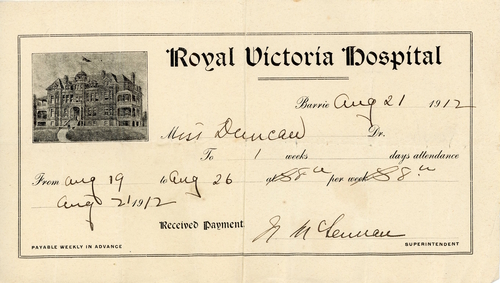 Royal Victoria Hospital
Barrie Aug 21 1912
Miss Duncan Dr.
To 1 weeks days attendance
From Aug 19 to Aug 26 at $8 per week $8
Aug 21 1912
Received Payment
N McLennan
PAYABLE WEEKLY IN ADVANCE SUPERINTENDENT